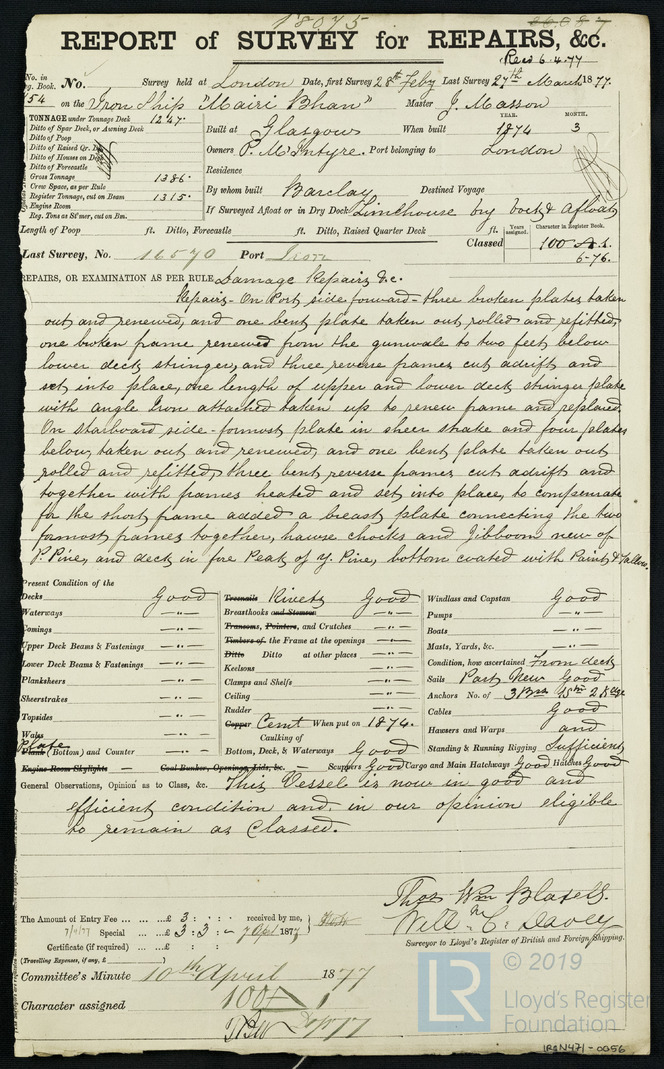 18075
REPORT of SURVEY for REPAIRS, &c.
Recd 6.4.77
No. in Reg. Book. No. Survey held at London Date, first Survey 28th Feby Last Survey 27th March 1877.
on the Iron Ship "Mairi Bhan" Master J. Masson
TONNAGE under Tonnage Deck 1247.
Ditto of Spar Deck, or Awning Deck
Ditto of Poop
Ditto of Raised Qr. Dk
Ditto of Houses on Deck
Ditto of Forecastle
Gross Tonnage 1386.
Crew Space, as per Rule
Register Tonnage, cut on Beam 1315.
Engine Room
Reg. Tons as St'mer, cut on Bm.
Built at Glasgow When built YEAR. 1874 MONTH. 3
Owners P. McIntyre. Port belonging to London
Residence
By whom built Barclay Destined Voyage
If Surveyed Afloat or in Dry Dock Limehouse dry dock & afloat
Length of Poop ft. Ditto, Forecastle ft. Ditto, Raised Quarter Deck ft.
Classed Years assigned. Character in Register Book. 100 A.1.
6-76.
Last Survey, No. 16570 Port Iron
REPAIRS, OR EXAMINATION AS PER RULE Damage Repairs &c.
Repairs - On Port side forward - three broken plates taken
out and renewed, and one bent plate taken out, rolled and refitted,
one broken frame renewed from the gunwale to two feet below
lower deck stringer, and three reverse frames cut adrift and
set into place, one length of upper and lower deck stringer plate
with angle Iron attached taken up to renew frame and replaced.
On Starboard side - formost plate in sheer strake and four plates
below, taken out and renewed, and one bent plate taken out
rolled and refitted, three bent reverse frames cut adrift and
together with frames heated and set into place, to compensate
for the short frame added a breast plate connecting the two
formost frames together, hawse chocks and Jibboom new of
P. Pine, and deck in fore Peak of Y. Pine, bottom coated with Paint & Tallow.
Present Condition of the
Decks Good
Waterways -"-
Comings -"-
Upper Deck Beams & Fastenings -"-
Lower Deck Beams & Fastenings -"-
Planksheers -"-
Sheerstrakes -"-
Topsides -"-
Wales
Plate Plank (Bottom) and Counter -"-
Engine Room Skylights — Coal Bunker, Openings, Lids, &c. —
Treenails Rivets Good
Breasthooks and Stemson -"-
Transoms, Pointers, and Crutches -"-
Timbers of the Frame at the openings -"-
Ditto Ditto at other places -"-
Keelsons -"-
Clamps and Shelfs -"-
Ceiling -"-
Rudder -"-
Copper Cemt When put on 1874.
Caulking of
Bottom, Deck, & Waterways Good
Scuppers Good Cargo and Main Hatchways Good Hatches Good
Windlass and Capstan Good
Pumps -"-
Boats -"-
Masts, Yards, &c. -"-
Condition, how ascertained From deck
Sails Part New Good
Anchors No. of 3 Brs 1 Sn 2 Kedge
Cables Good
Hawsers and Warps and
Standing & Running Rigging Sufficient
General Observations, Opinion as to Class, &c. This Vessel is now in good and
efficient condition and in our opinion eligible
to remain as Classed.
Thos Wm Blasell.
Will. C. Davey
Surveyor to Lloyd's Register of British and Foreign Shipping.
The Amount of Entry Fee ... £ 3 : : received by me,
7/4/77 Special ... £ 3 : 3 : - 7 Apl 1877
Certificate (if required) ... £ : :
(Travelling Expenses, if any, £ )
Committee's Minute 10th April 1877
Character assigned 100 A 1
© 2019
LR
Lloyd's Register
Foundation
IRON471-0056